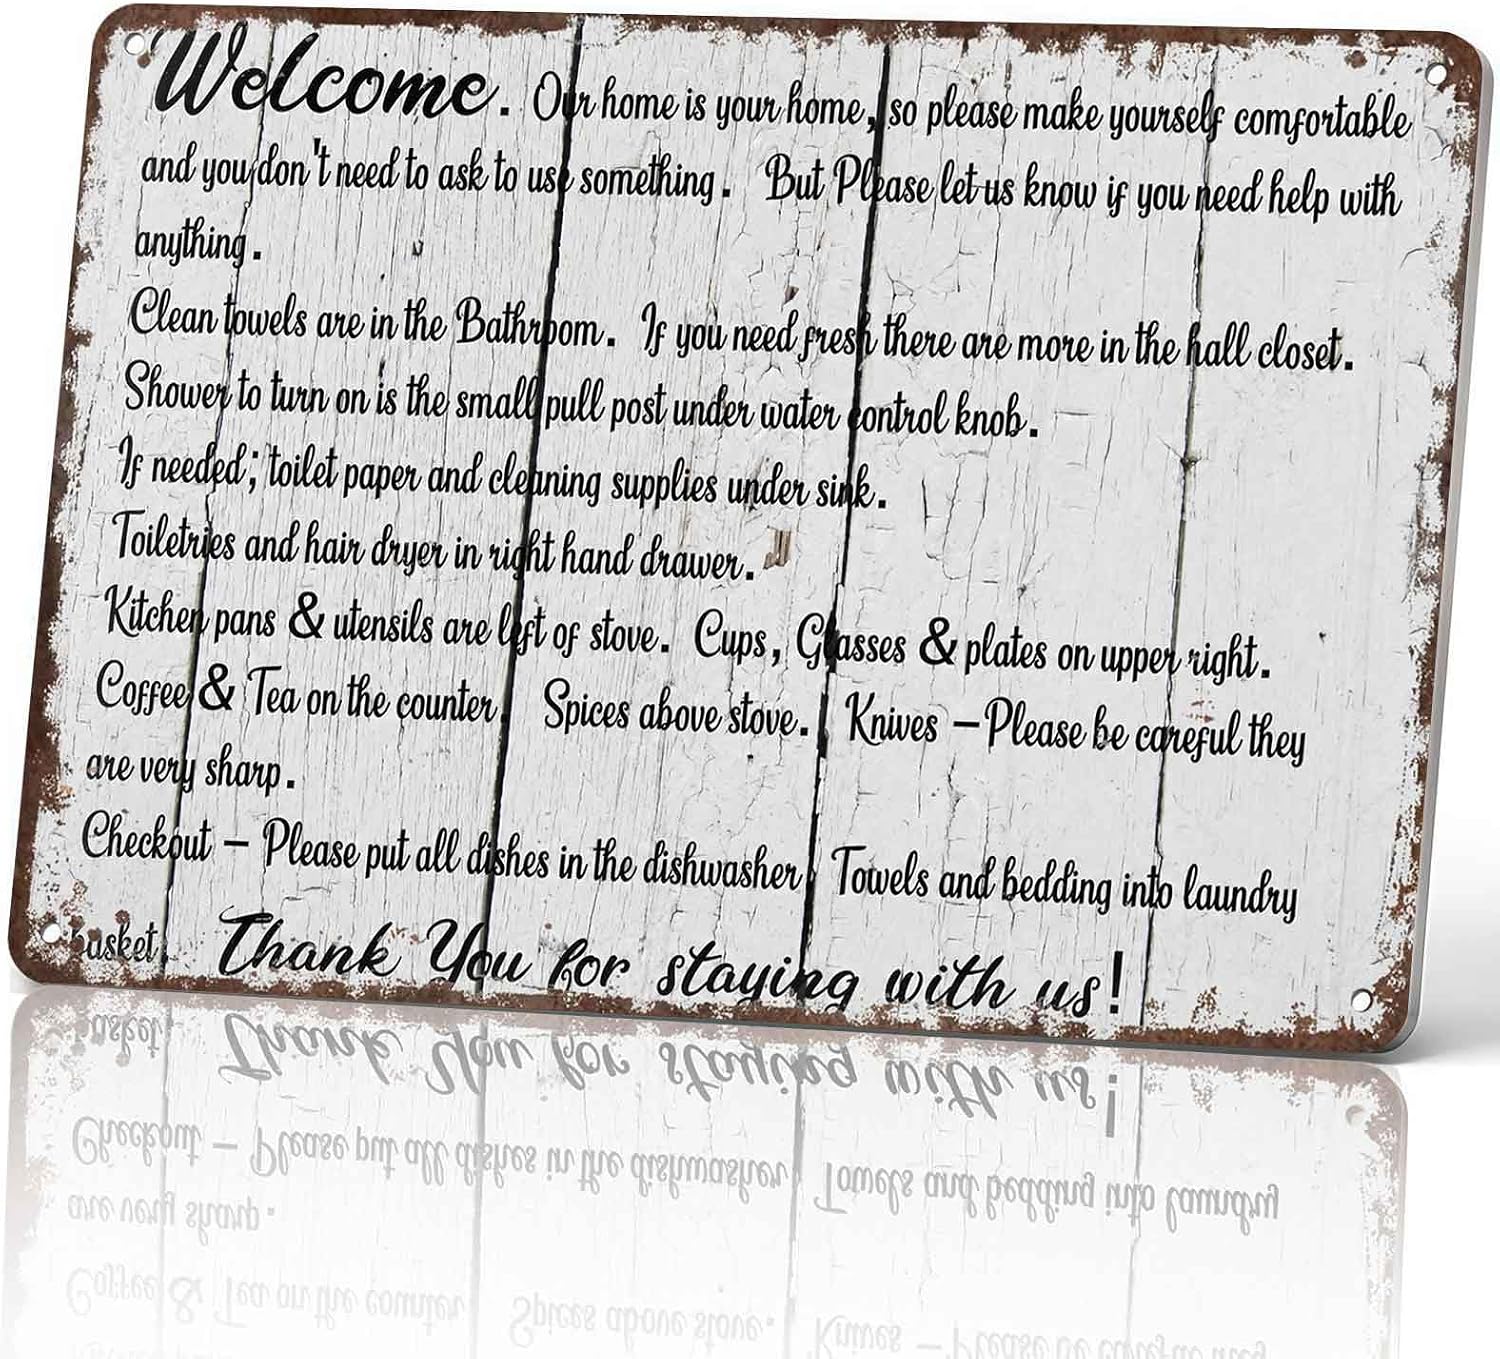 Welcome. Our home is your home, so please make yourself comfortable
and you don't need to ask to use something. But Please let us know if you need help with
anything.
Clean towels are in the Bathroom. If you need fresh there are more in the hall closet.
Shower to turn on is the small pull post under water control knob.
If needed; toilet paper and cleaning supplies under sink.
Toiletries and hair dryer in right hand drawer.
Kitchen pans & utensils are left of stove. Cups, Glasses & plates on upper right.
Coffee & Tea on the counter. Spices above stove. Knives – Please be careful they
are very sharp.
Checkout – Please put all dishes in the dishwasher. Towels and bedding into laundry
basket.
Thank You for staying with us!